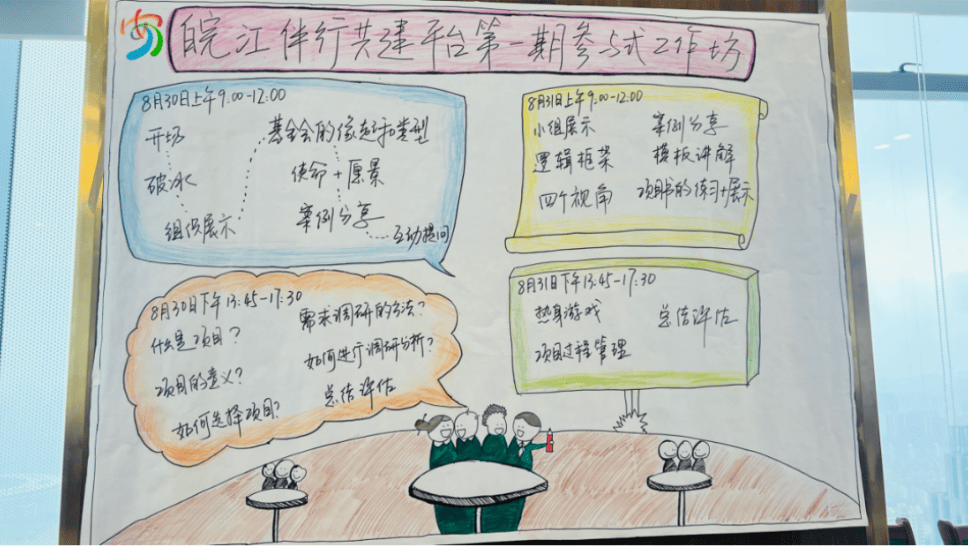 皖江伴行共建平台第一期参与式工作坊
8月30日上午9:00-12:00
开场
破冰
组织展示
基金会的缘起和类型
使命+愿景
案例分享
互动提问
8月31日上午9:00-12:00
小组展示
逻辑框架
四个视角
案例分享
模板讲解
项目书的练习+展示
8月30日下午13:45-17:30
什么是项目?
项目的意义?
如何选择项目?
需求调研的方法?
如何进行调研分析?
总结评估
8月31日下午13:45-17:30
热身游戏
项目过程管理
总结评估